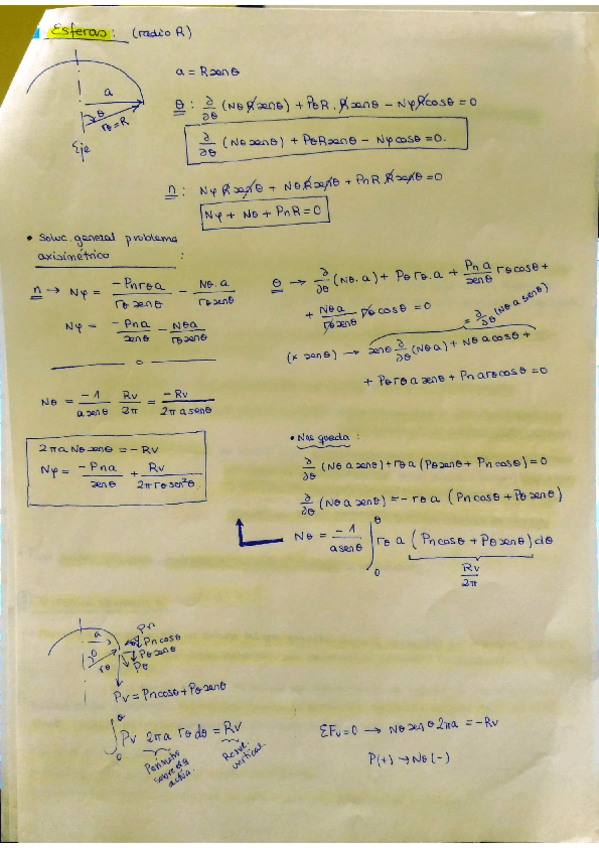 Esferas: (radio R)
a
θ
rθ = R
Eje
a = R senθ
θ: ∂/∂θ (Nθ R senθ) + PθR · R senθ − Nφ R cosθ = 0
∂/∂θ (Nθ senθ) + PθR senθ − Nφ cosθ = 0.
n: Nφ R senθ + Nθ R senθ + PnR R senθ = 0
Nφ + Nθ + PnR = 0
• Soluc. general problema
axisimétrico :
n → Nφ = −Pn rθ a / rθ senθ − Nθ · a / rθ senθ
Nφ = −Pn a / senθ − Nθ a / rθ senθ
θ → ∂/∂θ (Nθ · a) + Pθ rθ · a + Pn a / senθ rθ cosθ +
+ Nθ a / rθ senθ rθ cosθ = 0
= ∂/∂θ (Nθ a senθ)
(x senθ) → senθ ∂/∂θ (Nθ a) + Nθ a cosθ +
+ Pθ rθ a senθ + Pn a rθ cosθ = 0
Nθ = −1 / a senθ Rv / 2π = −Rv / 2π a senθ
2πa Nθ senθ = −Rv
Nφ = −Pn a / senθ + Rv / 2π rθ sen²θ
• Nos queda :
∂/∂θ (Nθ a senθ) + rθ a (Pθ senθ + Pn cosθ) = 0
∂/∂θ (Nθ a senθ) = − rθ a (Pn cosθ + Pθ senθ)
Nθ = −1 / a senθ ∫₀^θ rθ a (Pn cosθ + Pθ senθ) dθ
Rv / 2π
a
θ
rθ
Pn
Pn cosθ
Pθ senθ
Pθ
Pv = Pn cosθ + Pθ senθ
∫₀^θ Pv 2πa rθ dθ = Rv
sobre
actúa.
vertical.
ΣFv = 0 → Nθ senθ 2πa = −Rv
P(+) → Nθ (−)